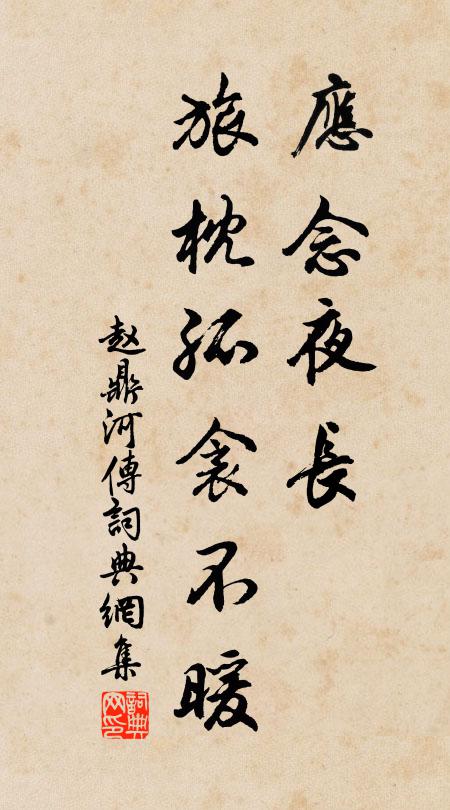 應念夜長
旅枕孤衾不暖
赵鼎河傳詞典網集
詞典网印